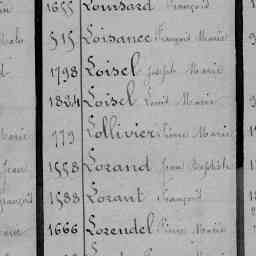 1655 Loinsard François
515 Loisance François Marie
1798 Loisel Joseph Marie
1824 Loisel Louis Marie
Marie 779 Lollivier Pierre Marie
Jean 1558 Lorand Jean Baptiste
François 1588 Lorant François
1666 Lorendel Pierre Marie